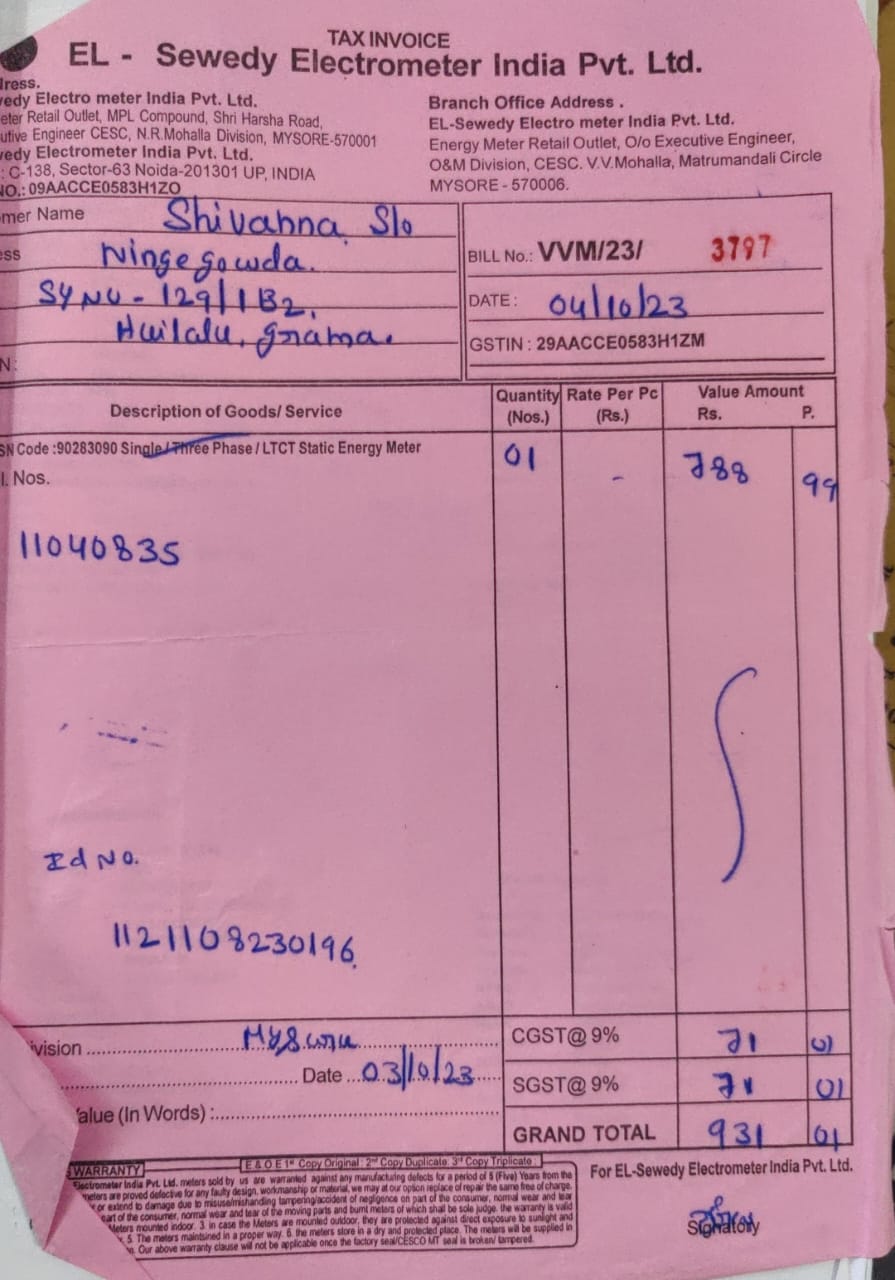 TAX INVOICE
EL - Sewedy Electrometer India Pvt. Ltd.
dress.
wedy Electro meter India Pvt. Ltd.
eter Retail Outlet, MPL Compound, Shri Harsha Road,
utive Engineer CESC, N.R.Mohalla Division, MYSORE-570001
wedy Electrometer India Pvt. Ltd.
: C-138, Sector-63 Noida-201301 UP, INDIA
NO.: 09AACCE0583H1ZO
Branch Office Address .
EL-Sewedy Electro meter India Pvt. Ltd.
Energy Meter Retail Outlet, O/o Executive Engineer,
O&M Division, CESC. V.V.Mohalla, Matrumandali Circle
MYSORE - 570006.
omer Name Shivanna S/o
ess Ningegowda.
SY NO - 129/1B2,
Huilalu, grama.
N:
BILL No.: VVM/23/ 3797
DATE : 04/10/23
GSTIN : 29AACCE0583H1ZM
Description of Goods/ Service Quantity (Nos.) Rate Per Pc (Rs.) Value Amount Rs. P.
SN Code :90283090 Single / Three Phase / LTCT Static Energy Meter 01 - 788 99
l. Nos.
11040835
Id No.
1121108230196
ivision Mysuru CGST@ 9% 71 01
Date 03/10/23 SGST@ 9% 71 01
alue (In Words) : GRAND TOTAL 931 01
E & O E 1st Copy Original : 2nd Copy Duplicate: 3rd Copy Triplicate :
WARRANTY
Electrometer India Pvt. Ltd. meters sold by us are warranted against any manufacturing defects for a period of 5 (Five) Years from the
meters are proved defective for any faulty design, workmanship or material, we may at our option replace of repair the same free of charge.
or extend to damage due to misuse/mishandling tampering/accident of negligence on part of the consumer, normal wear and tear
part of the consumer, normal wear and tear of the moving parts and burnt meters of which shall be sole judge. the warranty is valid
Meters mounted indoor. 3. in case the Meters are mounted outdoor, they are protected against direct exposure to sunlight and
5. The meters maintsined in a proper way. 6. the meters store in a dry and protected place. The meters will be supplied in
n. Our above warranty clause will not be applicable once the factory seal/CESCO MT seal is broken/ tampered.
For EL-Sewedy Electrometer India Pvt. Ltd.
Signatory